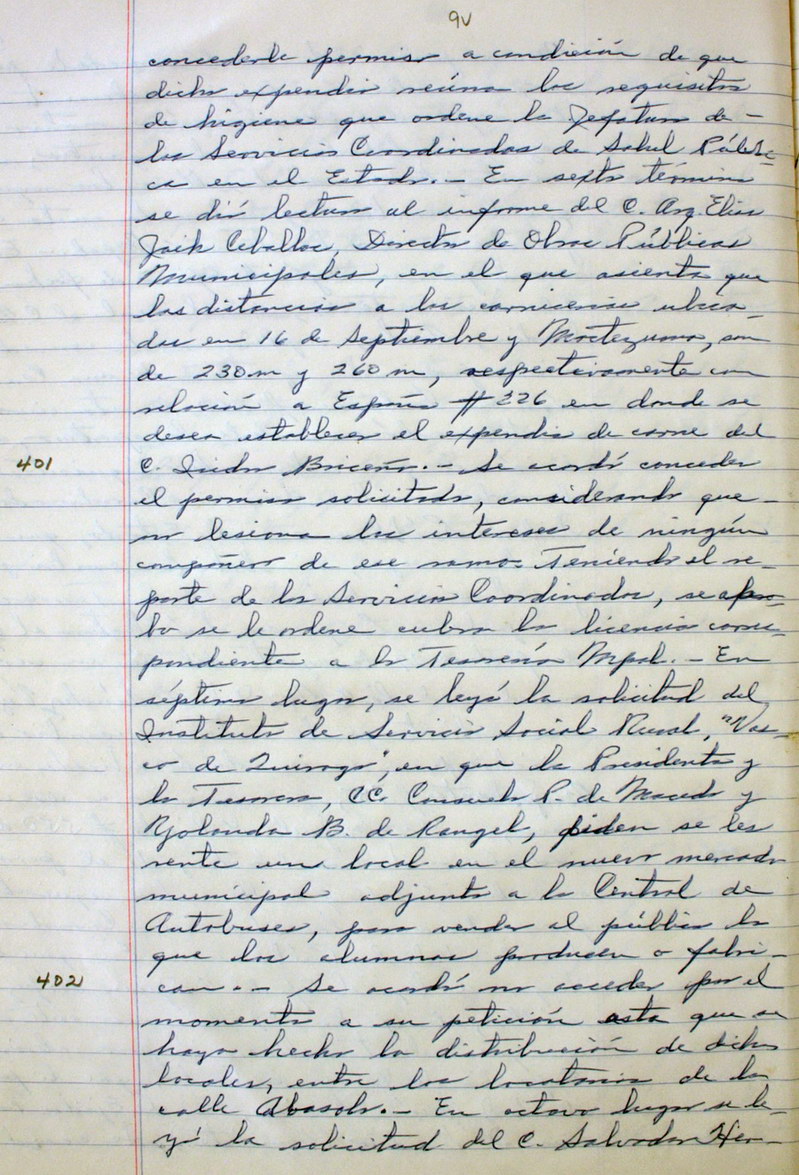 9v
concederle permiso a condición de que
dicho expendio reúna los requisitos
de higiene que ordene la Jefatura de -
los Servicios Coordinados de Salud Públi-
ca en el Estado. - En sexto término
se dió lectura al informe del C. Arq. Elías
Jaik Ceballos, Director de Obras Públicas
Municipales, en el que asienta que
las distancias a las carnicerías ubica-
das en 16 de Septiembre y Moctezuma, son
de 230 m y 260 m, respectivamente con
relación a España # 326 en donde se
desea establecer el expendio de carne del
401 C. Isidro Briceño. - Se acordó conceder
el permiso solicitado, considerando que -
no lesiona los intereses de ningún
compañero de ese ramo. Teniendo el re-
porte de los Servicios Coordinados, se apro-
bo se le ordene cubra la licencia corres-
pondiente a la Tesorería Mpal. - En
séptimo lugar, se leyó la solicitud del
Instituto de Servicio Social Rural, "Vas-
co de Quiroga", en que la Presidenta y
la Tesorera, CC. Consuelo P. de Macedo y
Yolanda B. de Rangel, piden se les
rente un local en el nuevo mercado
municipal adjunto a la Central de
Autobuses, para vender al público lo
que los alumnos producen o fabri-
402 can. - Se acordó no acceder por el
momento a su petición asta que se
haya hecho la distribución de dichos
locales, entre los locatarios de la
calle Abasolo. - En octavo lugar se le-
yó la solicitud del C. Salvador Her-